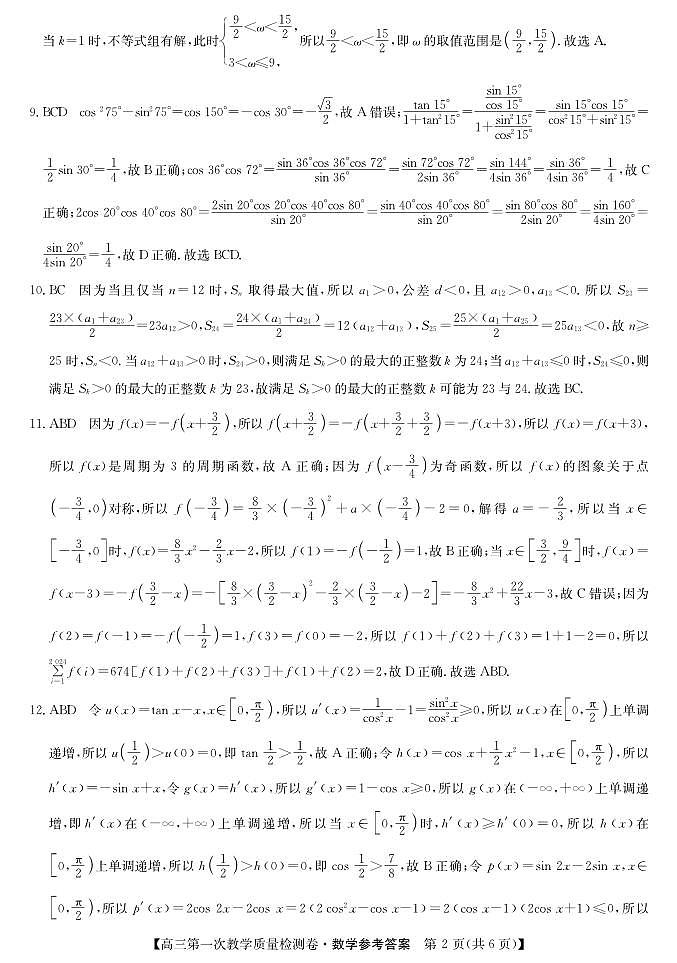 当 k=1 时,不等式组有解,此时{9/2<ω<15/2, 3<ω≤9, 所以 9/2<ω<15/2,即 ω 的取值范围是(9/2,15/2).故选 A.
9. BCD cos ²75°-sin²75°=cos 150°=-cos 30°=-√3/2,故 A 错误;tan 15°/(1+tan²15°)=(sin 15°/cos 15°)/(1+sin²15°/cos²15°)=sin 15°cos 15°/(cos²15°+sin²15°)=
1/2 sin 30°=1/4,故 B 正确;cos 36°cos 72°=sin 36°cos 36°cos 72°/sin 36°=sin 72°cos 72°/2sin 36°=sin 144°/4sin 36°=sin 36°/4sin 36°=1/4,故 C
正确;2cos 20°cos 40°cos 80°=2sin 20°cos 20°cos 40°cos 80°/sin 20°=sin 40°cos 40°cos 80°/sin 20°=sin 80°cos 80°/2sin 20°=sin 160°/4sin 20°=
sin 20°/4sin 20°=1/4,故 D 正确.故选 BCD.
10. BC 因为当且仅当 n=12 时,Sₙ 取得最大值,所以 a₁>0,公差 d<0,且 a₁₂>0,a₁₃<0.所以 S₂₃=
23×(a₁+a₂₃)/2=23a₁₂>0,S₂₄=24×(a₁+a₂₄)/2=12(a₁₂+a₁₃),S₂₅=25×(a₁+a₂₅)/2=25a₁₃<0,故 n≥
25 时,Sₙ<0.当 a₁₂+a₁₃>0 时,S₂₄>0,则满足 Sₖ>0 的最大的正整数 k 为 24;当 a₁₂+a₁₃≤0 时,S₂₄≤0,则
满足 Sₖ>0 的最大的正整数 k 为 23,故满足 Sₖ>0 的最大的正整数 k 可能为 23 与 24.故选 BC.
11. ABD 因为 f(x)=-f(x+3/2),所以 f(x+3/2)=-f(x+3/2+3/2)=-f(x+3),所以 f(x)=f(x+3),
所以 f(x)是周期为 3 的周期函数,故 A 正确;因为 f(x-3/4)为奇函数,所以 f(x)的图象关于点
(-3/4,0)对称,所以 f(-3/4)=8/3×(-3/4)²+a×(-3/4)-2=0,解得 a=-2/3,所以当 x∈
[-3/4,0]时,f(x)=8/3x²-2/3x-2,所以 f(1)=-f(-1/2)=1,故 B 正确;当 x∈[3/2,9/4]时,f(x)=
f(x-3)=-f(3/2-x)=-[8/3×(3/2-x)²-2/3×(3/2-x)-2]=-8/3x²+22/3x-3,故 C 错误;因为
f(2)=f(-1)=-f(-1/2)=1,f(3)=f(0)=-2,所以 f(1)+f(2)+f(3)=1+1-2=0,所以
2 024∑i=1 f(i)=674[f(1)+f(2)+f(3)]+f(1)+f(2)=2,故 D 正确.故选 ABD.
12. ABD 令 u(x)=tan x-x,x∈[0,π/2),所以 u′(x)=1/cos²x-1=sin²x/cos²x≥0,所以 u(x)在[0,π/2)上单调
递增,所以 u(1/2)>u(0)=0,即 tan 1/2>1/2,故 A 正确;令 h(x)=cos x+1/2x²-1,x∈[0,π/2),所以
h′(x)=-sin x+x,令 g(x)=h′(x),所以 g′(x)=1-cos x≥0,所以 g(x)在(-∞,+∞)上单调递
增,即 h′(x)在(-∞,+∞)上单调递增,所以当 x∈[0,π/2)时,h′(x)≥h′(0)=0,所以 h(x)在
[0,π/2)上单调递增,所以 h(1/2)>h(0)=0,即 cos 1/2>7/8,故 B 正确;令 p(x)=sin 2x-2sin x,x∈
[0,π/2),所以 p′(x)=2cos 2x-2cos x=2(2 cos²x-cos x-1)=2(cos x-1)(2cos x+1)≤0,所以
【高三第一次教学质量检测卷·数学参考答案 第 2 页(共 6 页)】